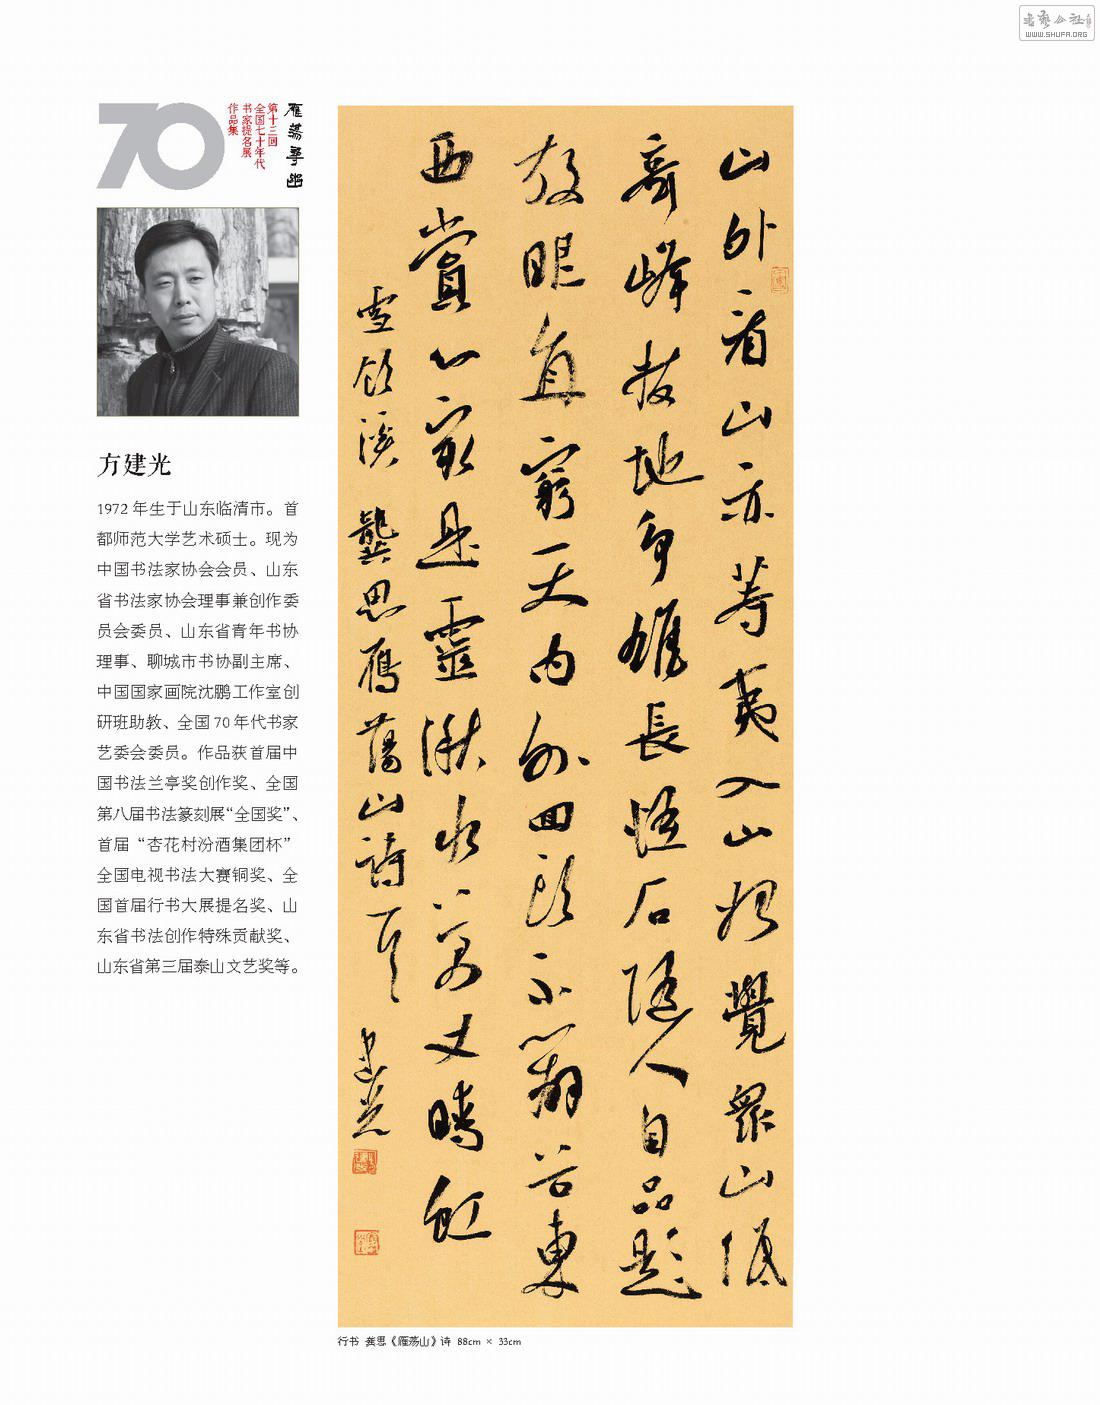 书法公社
WWW.SHUFA.ORG
70
雁荡寻幽
第十三回
全国七十年代
书家提名展
作品集
方建光
1972 年生于山东临清市。首
都师范大学艺术硕士。现为
中国书法家协会会员、山东
省书法家协会理事兼创作委
员会委员、山东省青年书协
理事、聊城市书协副主席、
中国国家画院沈鹏工作室创
研班助教、全国 70 年代书家
艺委会委员。作品获首届中
国书法兰亭奖创作奖、全国
第八届书法篆刻展“全国奖”、
首届“杏花村汾酒集团杯”
全国电视书法大赛铜奖、全
国首届行书大展提名奖、山
东省书法创作特殊贡献奖、
山东省第三届泰山文艺奖等。
山外看山亦等夷入山始覺眾山低
奇峰拔地争雄長怪石随人自品題
放眼直窮天内外回頭不翻苦東
西賞心最是靈湫水百丈晴虹
雪領溪 龔思雁蕩山詩一頁 建光
行书 龚思《雁荡山》诗 88cm × 33cm